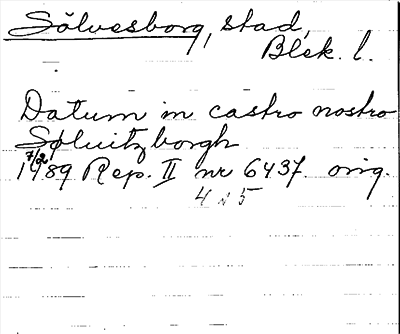 Sölvesborg, stad,
Blek. l.
Datum in castro nostro
Søluitzborgh
7/2
1489 Rep. II nr 6437. orig.